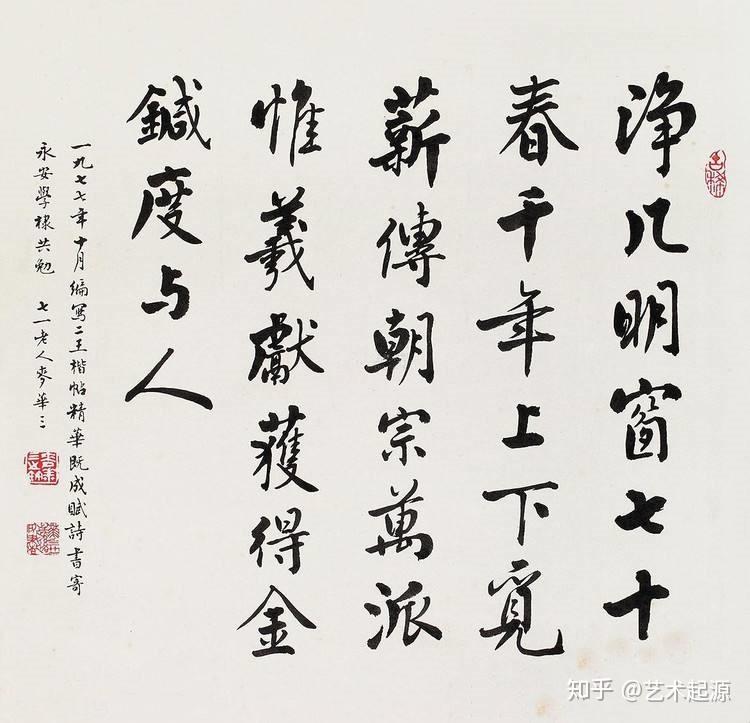 净几明窗七十
春千年上下覓
薪傳朝宗萬派
惟羲獻獲得金
鍼度与人
一九七七年十月編写二王楷帖精華既成賦詩書寄
永安學棣共勉 七一老人麥華三
知乎 @艺术起源